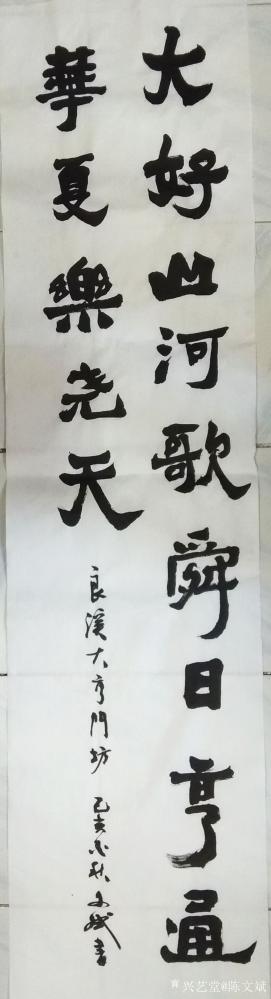 大好山河歌舜日亨通
華夏樂尧天
良溪大亨門坊 己亥 秋 文斌書
兴艺堂@陈文斌